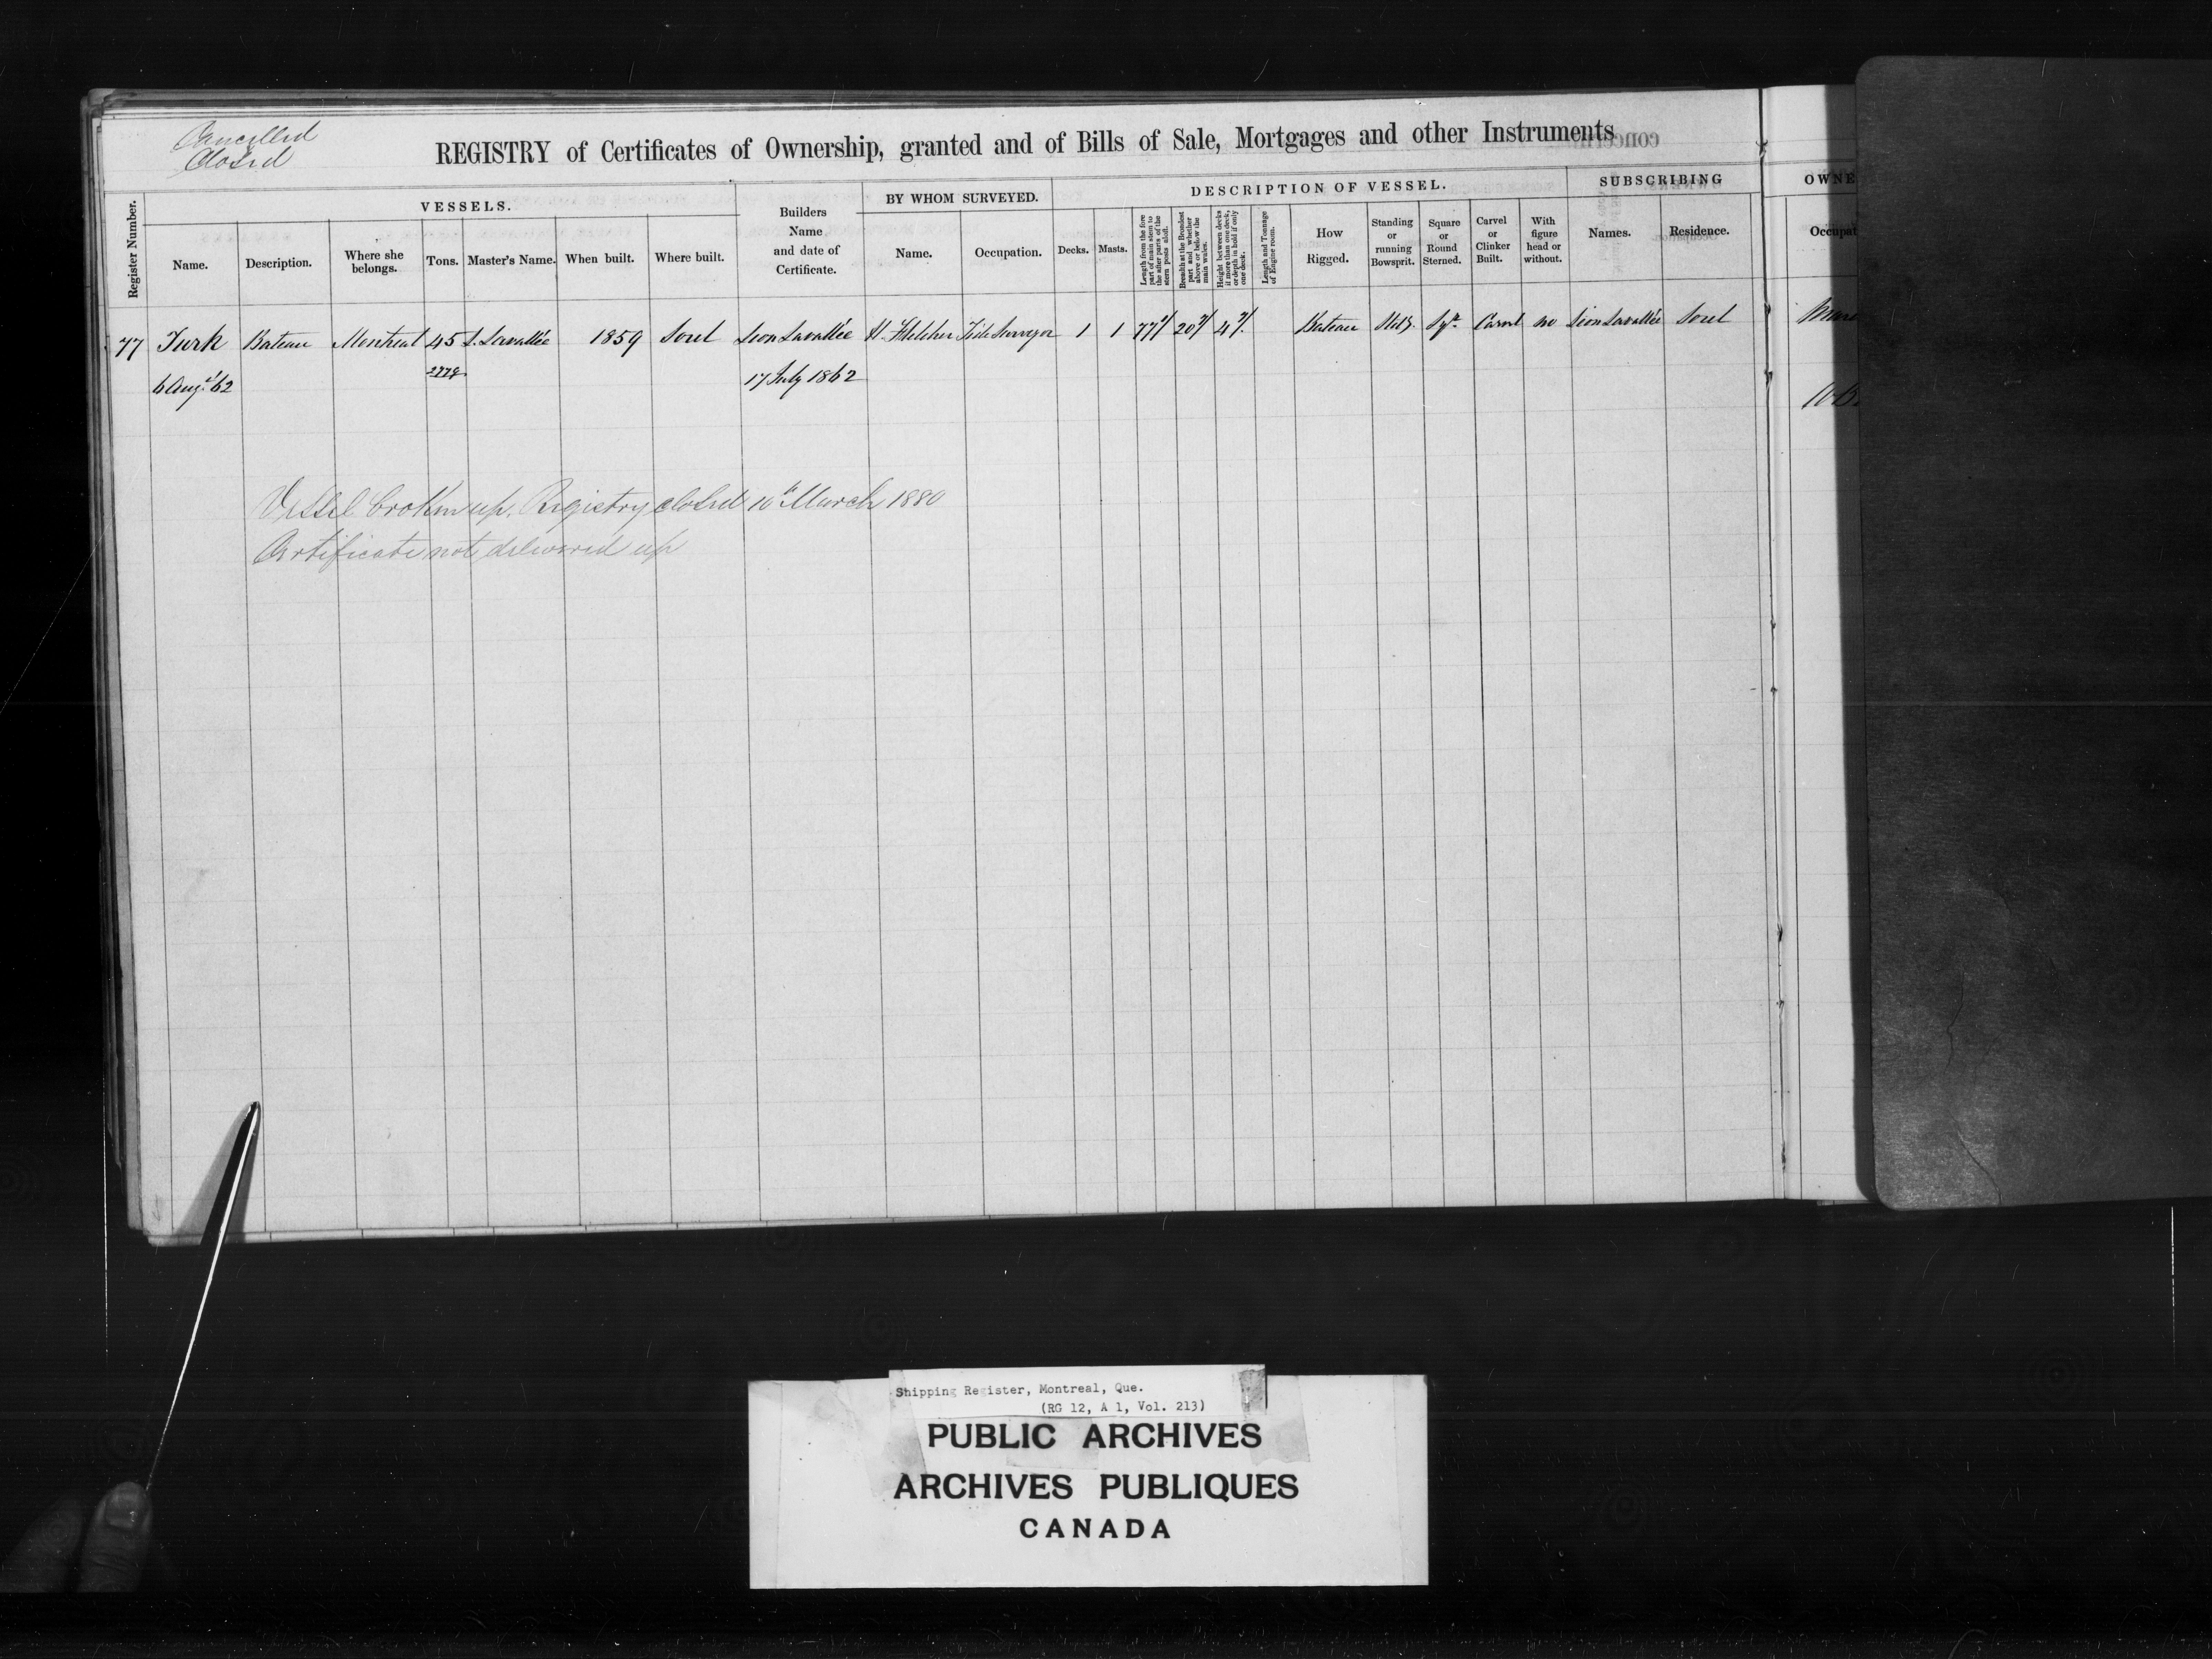 Cancelled
Closed
REGISTRY of Certificates of Ownership, granted and of Bills of Sale, Mortgages and other Instruments
Register Number.
VESSELS.
Name.
Description.
Where she belongs.
Tons.
Master's Name.
When built.
Where built.
Builders Name and date of Certificate.
BY WHOM SURVEYED.
Name.
Occupation.
DESCRIPTION OF VESSEL.
Decks.
Masts.
Length from the fore part of main stem to the after parts of the stern posts aloft.
Breadth at the Broadest part and whether above or below the main wales.
Height between decks if more than one deck, or depth in hold if only one deck.
Length and Tonnage of Engine room.
How Rigged.
Standing or running Bowsprit.
Square or Round Sterned.
Carvel or Clinker Built.
With figure head or without.
SUBSCRIBING
Names.
Residence.
OWNE
Occupat
77 Turk Bateau Montreal 45 L. Lavallée 1859 Sorel Leon Lavallée H. Fletcher Tide Surveyor 1 1 77 20 4 Bateau Stdg. Sqr. Carvel no Leon Lavallée Sorel
6 Augt. '62 17 July 1862
Vessel broken up. Registry closed 10th March 1880
Certificate not delivered up
Shipping Register, Montreal, Que.
(RG 12, A 1, Vol. 213)
PUBLIC ARCHIVES
ARCHIVES PUBLIQUES
CANADA